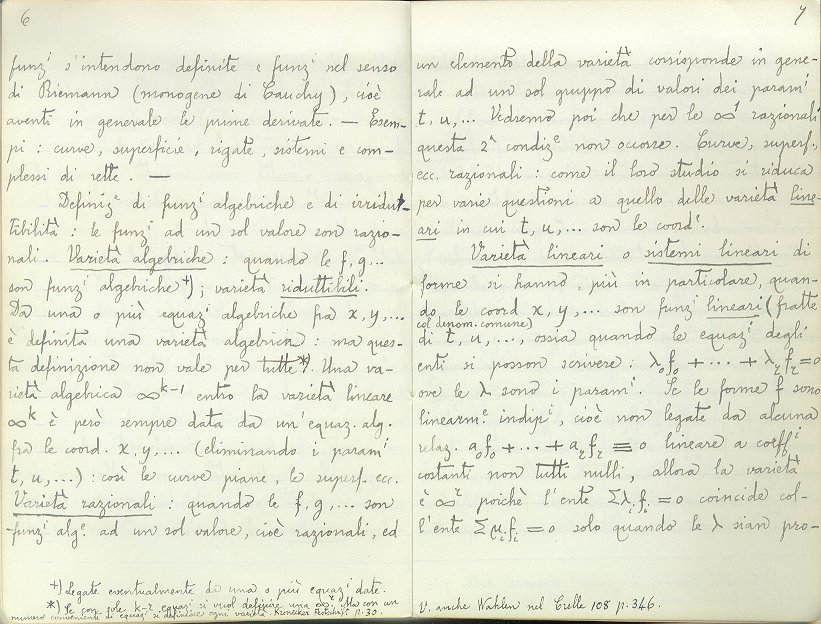 6
funz.i s'intendono definite e funz.i nel senso
di Riemann (monogene di Cauchy), cioè
aventi in generale le prime derivate. — Esem-
pi: curve, superficie, rigate, sistemi e com-
plessi di rette. —
Definiz.e di funz.i algebriche e di irridut-
tibilità: le funz.i ad un sol valore son razio-
nali. Varietà algebriche: quando le f, g...
son funz.i algebriche +); varietà riduttibili.
Da una o più equaz.i algebriche fra x, y, ...
è definita una varietà algebrica: ma ques-
ta definizione non vale per tutte *). Una va-
rietà algebrica ∞^{k-1} entro la varietà lineare
∞^k è però sempre data da un'equaz. alg.
fra le coord. x, y, ... (eliminando i param.i
t, u, ...): così le curve piane, le superf. ecc.
Varietà razionali: quando le f, g, ... son
funz.i alg.e ad un sol valore, cioè razionali, ed
+) Legate eventualmente da una o più equaz.i date.
*) Se con sole k-r equaz.i si vuol definire una ∞^r. Ma con un
numero conveniente di equaz.i si definisce ogni varietà. Kronecker Festschrift p. 30.
7
un elemento della varietà corrisponde in gene-
rale ad un sol gruppo di valori dei param.i
t, u, ... Vedremo poi che per le ∞^1 razionali
questa 2ª condiz.e non occorre. Curve, superf.,
ecc. razionali: come il loro studio si riduca
per varie questioni a quello delle varietà line-
ari in cui t, u, ... son le coord.e.
Varietà lineari o sistemi lineari di
forme si hanno, più in particolare, quan-
do le coord x, y, ... son funz.i lineari (fratte
col denom. comune)
di t, u, ..., ossia quando le equaz.i degli
enti si posson scrivere: λ₀f₀ + ... + λ_r f_r = 0
ove le λ sono i param.i. Se le forme f sono
linearm.e indip.i, cioè non legate da alcuna
relaz. a₀f₀ + ... + a_r f_r ≡ 0 lineare a coeff.i
costanti non tutti nulli, allora la varietà
è ∞^r poichè l'ente Σλ_i f_i = 0 coincide col-
l'ente Σμ_i f_i = 0 solo quando le λ sian pro-
V. anche Wahlen nel Crelle 108 p. 346.